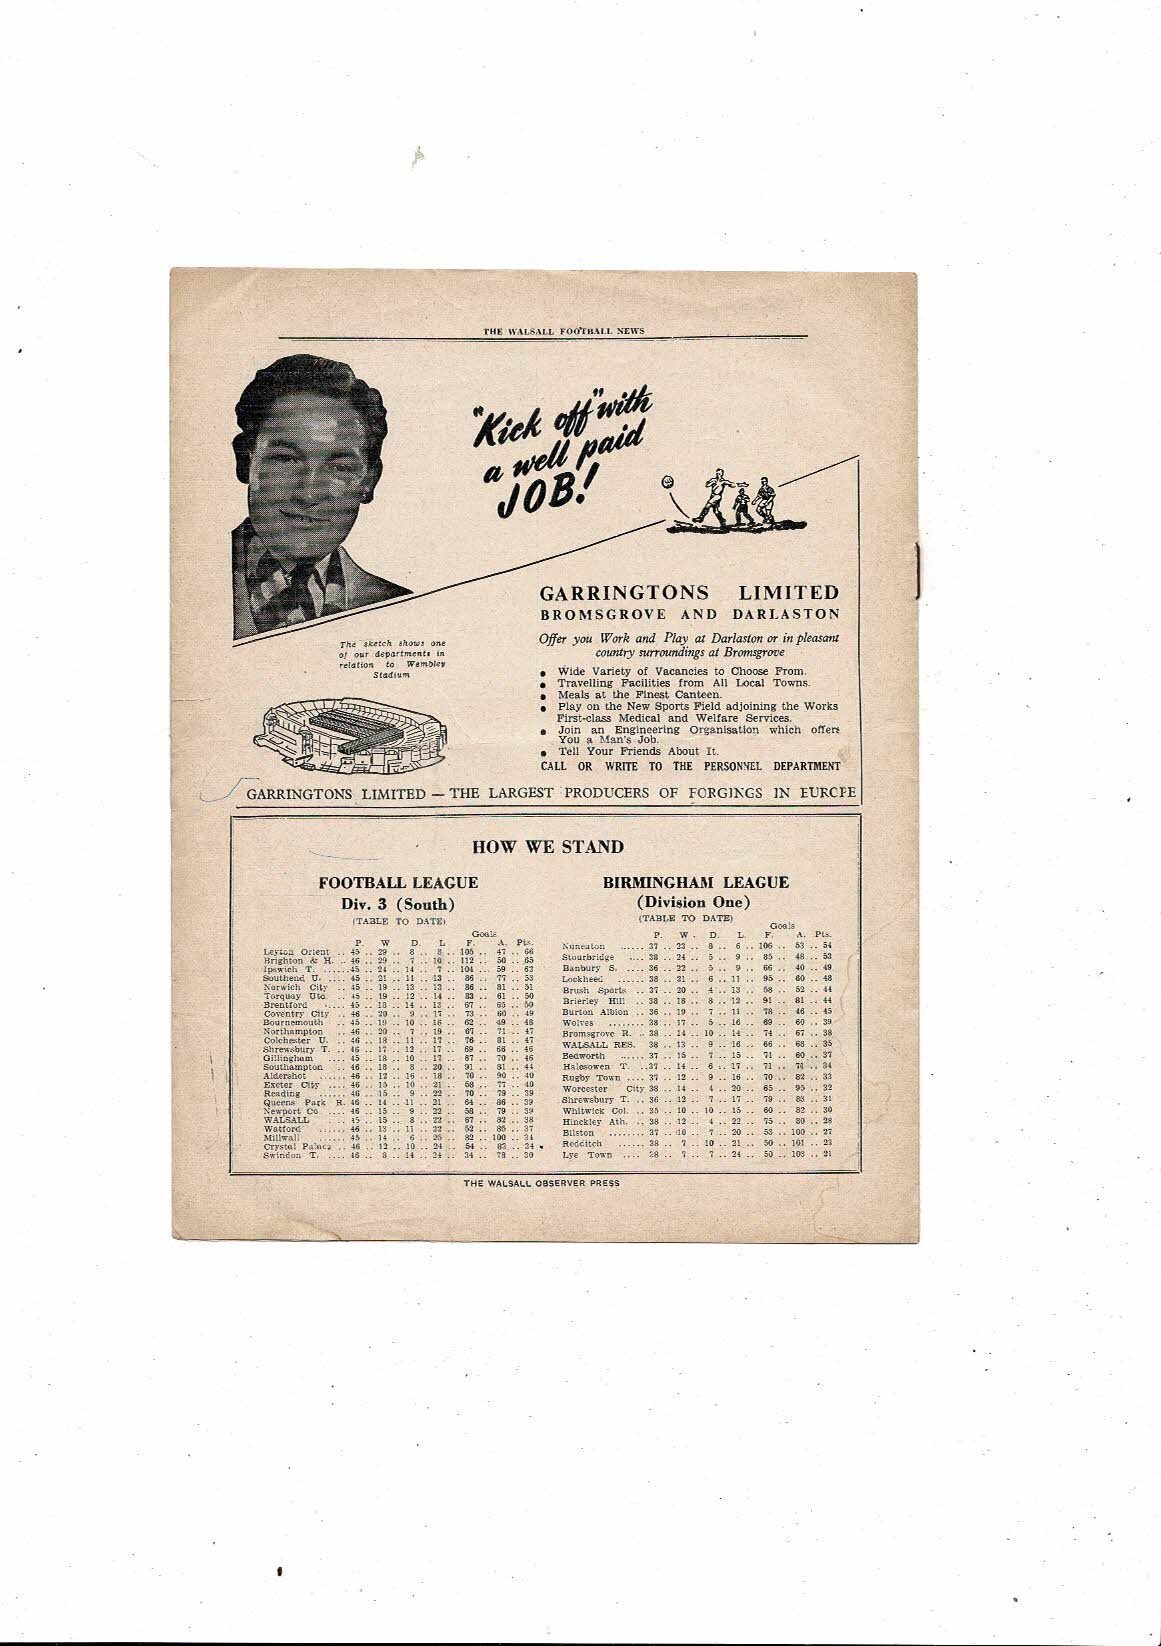 THE WALSALL FOOTBALL NEWS
"Kick off" with
a well paid
JOB!
GARRINGTONS LIMITED
BROMSGROVE AND DARLASTON
Offer you Work and Play at Darlaston or in pleasant
country surroundings at Bromsgrove
The sketch shows one
of our departments in
relation to Wembley
Stadium
● Wide Variety of Vacancies to Choose From.
● Travelling Facilities from All Local Towns.
● Meals at the Finest Canteen.
● Play on the New Sports Field adjoining the Works
First-class Medical and Welfare Services.
● Join an Engineering Organisation which offers
You a Man's Job.
● Tell Your Friends About It.
CALL OR WRITE TO THE PERSONNEL DEPARTMENT
GARRINGTONS LIMITED — THE LARGEST PRODUCERS OF FORGINGS IN EUROPE
HOW WE STAND
FOOTBALL LEAGUE
Div. 3 (South)
(TABLE TO DATE)
Goals
P. W D. L F. A. Pts.
Leyton Orient .. 45 .. 29 .. 8 .. 8 .. 106 .. 47 .. 66
Brighton & H. .. 46 .. 29 .. 7 .. 10 .. 112 .. 50 .. 65
Ipswich T. ......45 .. 24 .. 14 .. 7 .. 104 .. 59 .. 62
Southend U. .... 45 .. 21 .. 11 .. 13 .. 86 .. 77 .. 53
Norwich City .. 45 .. 19 .. 13 .. 13 .. 86 .. 81 .. 51
Torquay Utd. .. 45 .. 19 .. 12 .. 14 .. 83 .. 61 .. 50
Brentford .... 45 .. 18 .. 14 .. 13 .. 67 .. 65 .. 50
Coventry City .. 46 .. 20 .. 9 .. 17 .. 73 .. 60 .. 49
Bournemouth .. 45 .. 19 .. 10 .. 16 .. 62 .. 49 .. 48
Northampton .. 46 .. 20 .. 7 .. 19 .. 67 .. 71 .. 47
Colchester U. .. 46 .. 18 .. 11 .. 17 .. 76 .. 81 .. 47
Shrewsbury T. .. 46 .. 17 .. 12 .. 17 .. 69 .. 66 .. 46
Gillingham .... 45 .. 18 .. 10 .. 17 .. 67 .. 70 .. 46
Southampton .. 46 .. 18 .. 8 .. 20 .. 91 .. 81 .. 44
Aldershot ...... 46 .. 12 .. 16 .. 18 .. 70 .. 90 .. 40
Exeter City .. 46 .. 15 .. 10 .. 21 .. 58 .. 77 .. 40
Reading ...... 46 .. 15 .. 9 .. 22 .. 70 .. 79 .. 39
Queens Park R. 46 .. 14 .. 11 .. 21 .. 64 .. 86 .. 39
Newport Co .. 46 .. 15 .. 9 .. 22 .. 58 .. 79 .. 39
WALSALL .... 45 .. 15 .. 8 .. 22 .. 67 .. 82 .. 38
Watford ...... 46 .. 13 .. 11 .. 22 .. 52 .. 85 .. 37
Millwall ...... 45 .. 14 .. 6 .. 25 .. 82 .. 100 .. 34
Crystal Palace .. 46 .. 12 .. 10 .. 24 .. 54 .. 83 .. 34
Swindon T. .. 46 .. 8 .. 14 .. 24 .. 34 .. 78 .. 30
BIRMINGHAM LEAGUE
(Division One)
(TABLE TO DATE)
Goals
P. W. D. L. F. A. Pts.
Nuneaton ...... 37 .. 23 .. 8 .. 6 .. 106 .. 53 .. 54
Stourbridge .... 38 .. 24 .. 5 .. 9 .. 85 .. 48 .. 53
Banbury S. .... 36 .. 22 .. 5 .. 9 .. 66 .. 40 .. 49
Lockheed ...... 38 .. 21 .. 6 .. 11 .. 95 .. 60 .. 48
Brush Sports .. 37 .. 20 .. 4 .. 13 .. 58 .. 52 .. 44
Brierley Hill .. 38 .. 18 .. 8 .. 12 .. 91 .. 81 .. 44
Burton Albion .. 36 .. 19 .. 7 .. 11 .. 78 .. 46 .. 45
Wolves ........ 38 .. 17 .. 5 .. 16 .. 69 .. 60 .. 39
Bromsgrove R. .. 38 .. 14 .. 10 .. 14 .. 74 .. 67 .. 38
WALSALL RES. 38 .. 13 .. 9 .. 16 .. 66 .. 68 .. 35
Bedworth ...... 37 .. 15 .. 7 .. 15 .. 71 .. 60 .. 37
Halesowen T. ..37 .. 14 .. 6 .. 17 .. 71 .. 71 .. 34
Rugby Town .... 37 .. 12 .. 9 .. 16 .. 70 .. 82 .. 33
Worcester City 38 .. 14 .. 4 .. 20 .. 65 .. 95 .. 32
Shrewsbury T. .. 36 .. 12 .. 7 .. 17 .. 79 .. 88 .. 31
Whitwick Col. .. 35 .. 10 .. 10 .. 15 .. 60 .. 82 .. 30
Hinckley Ath. .. 38 .. 12 .. 4 .. 22 .. 75 .. 80 .. 28
Bilston ........ 37 .. 10 .. 7 .. 20 .. 53 .. 100 .. 27
Redditch ...... 38 .. 7 .. 10 .. 21 .. 50 .. 101 .. 23
Lye Town .... 38 .. 7 .. 7 .. 24 .. 50 .. 103 .. 21
THE WALSALL OBSERVER PRESS